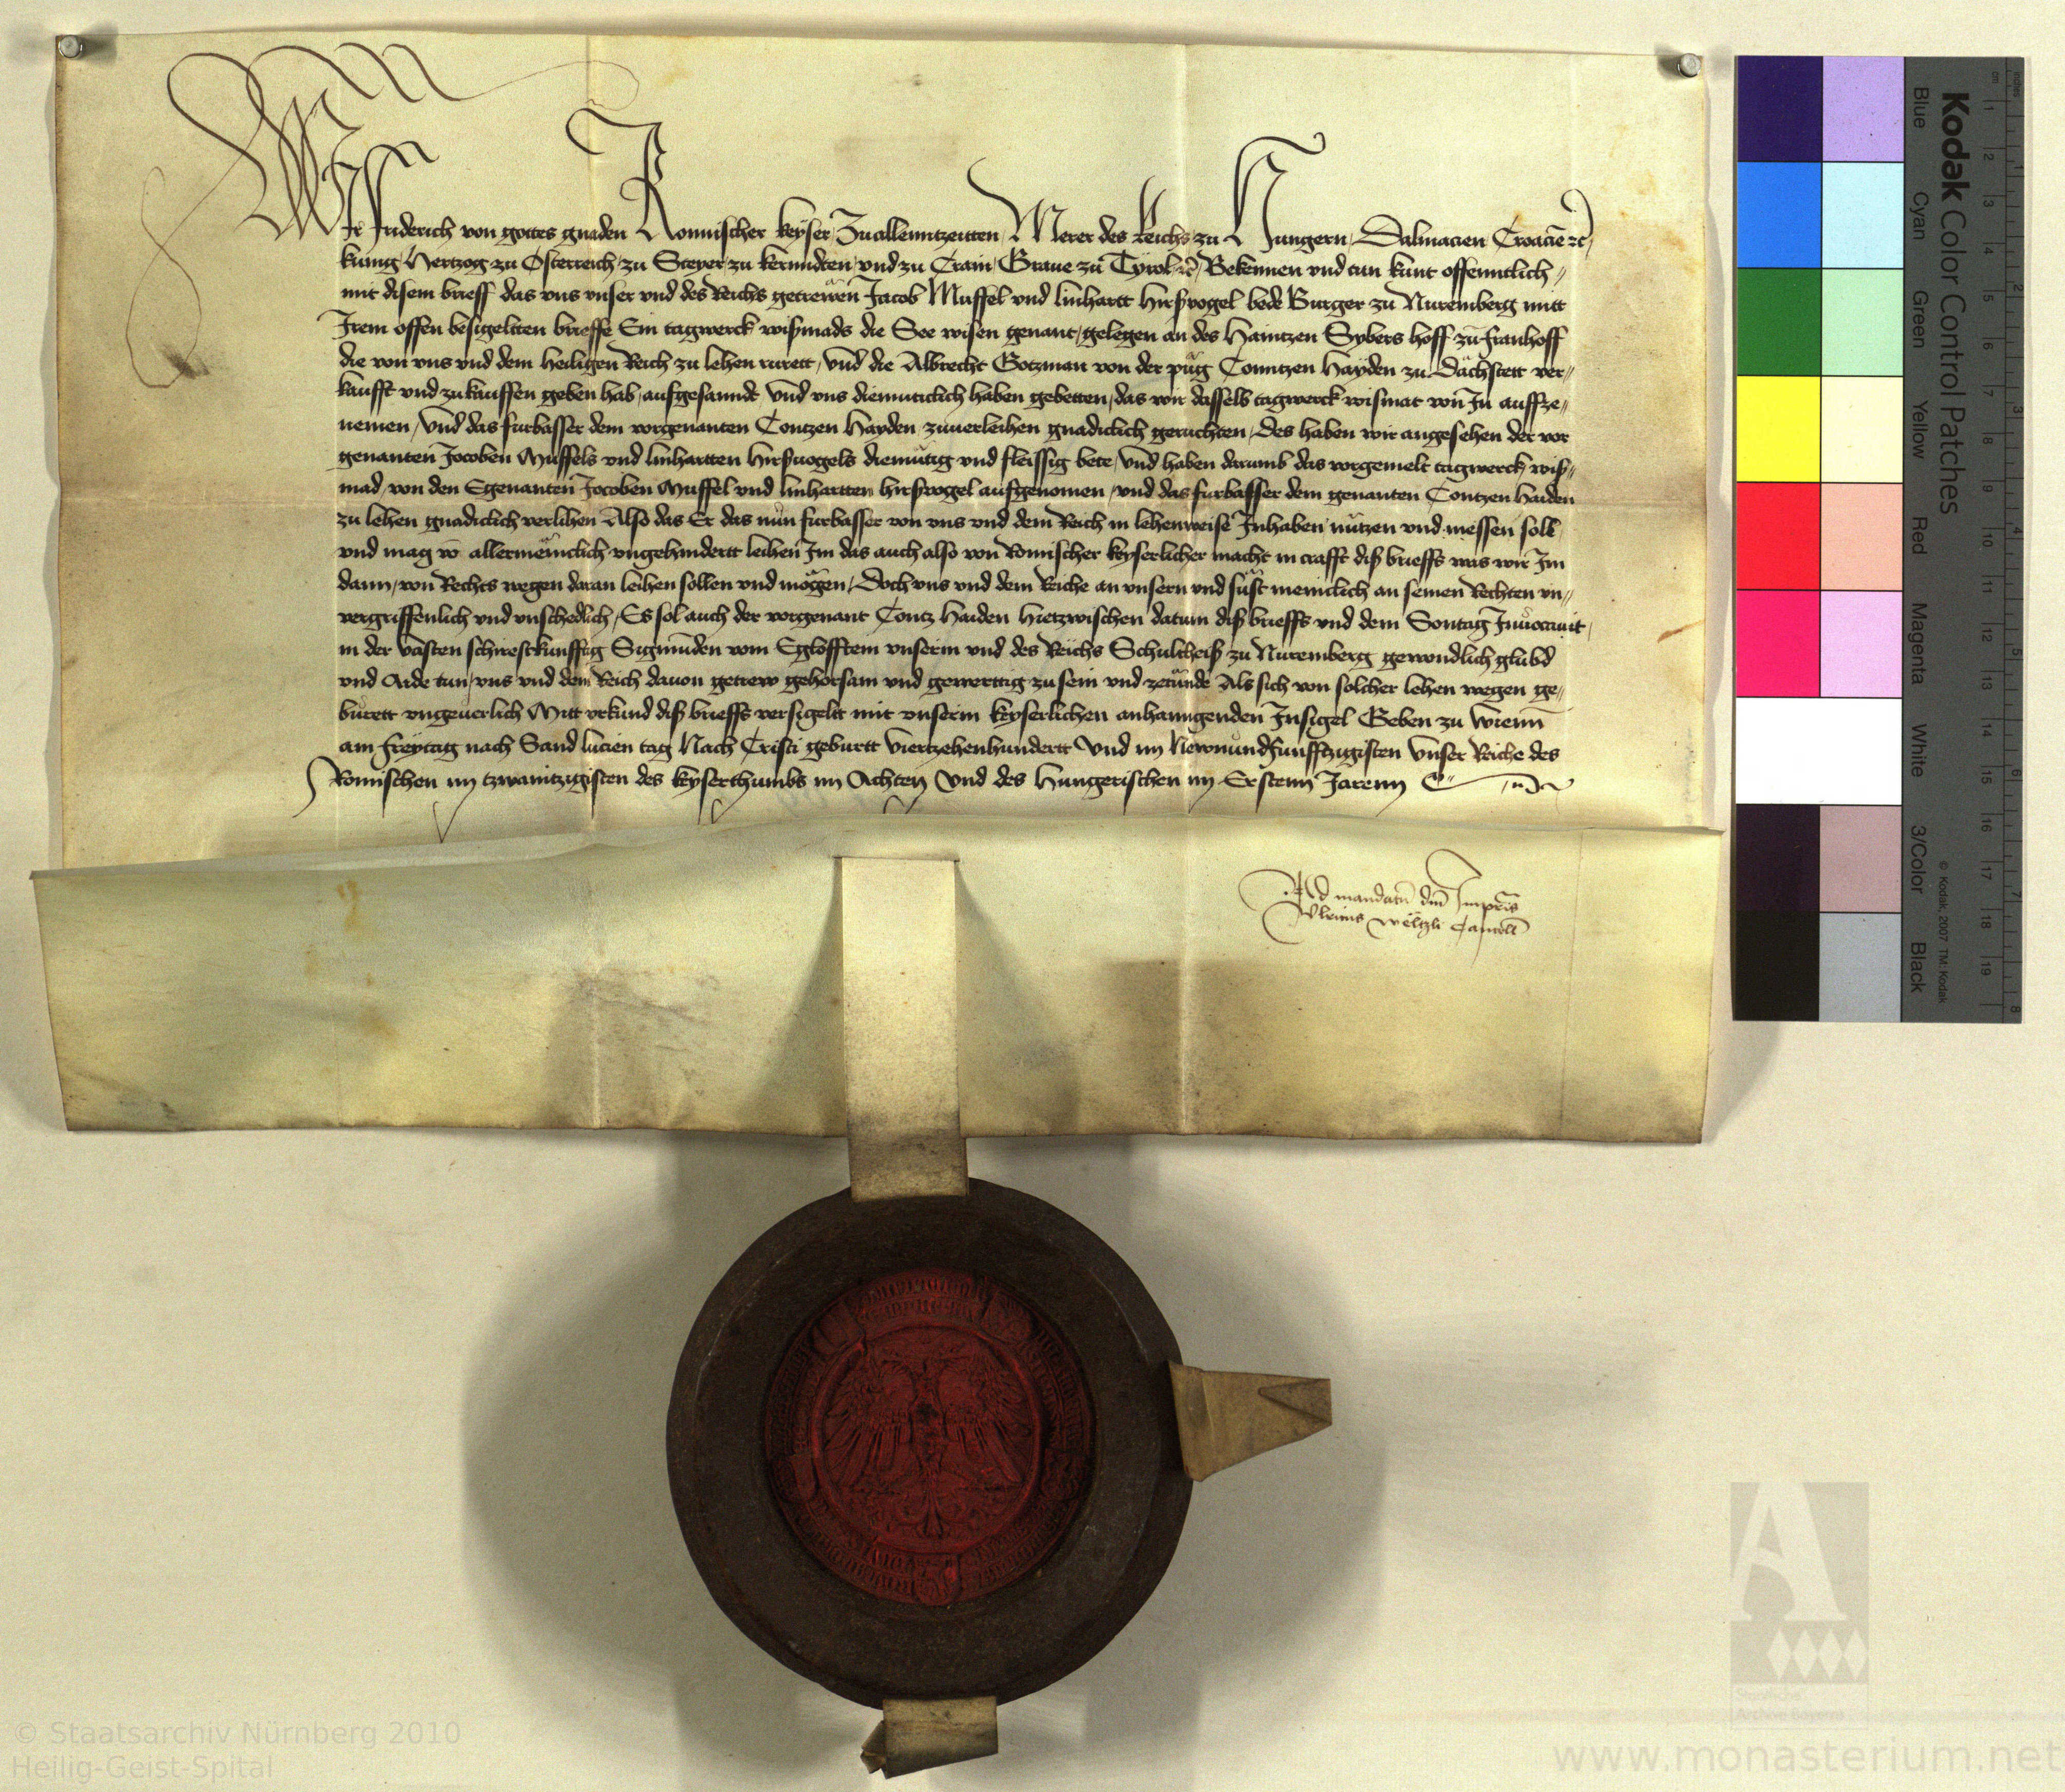 Wir Friderich von gottes gnaden Romischer keyser Zuallenntzeitten Merer des Reichs zu Hungern Dalmacien Croacien etc
kunig Hertzog zu Osterreich zu Steyer zu kernndten vnd zu Crain Graue zu Tyrol etc Bekennen vnd tun kunt offenntlich
mit disem brieff das vns vnser vnd des Reichs getrewen Jacob Muffel vnd linhartt hirsvogel bede Burger zu Nuremberg mitt
Irem offen besigeltten brieffe Ein tagwerck wismads die See wisen genant gelegen an des Haintzen Sybers hoff zu
die von vns vnd dem heiligen Reich zu lehen rurett vnd die Albrecht Gotzman von der püg Conntzen Hayden zu Dachstett ver⸗
kaufft vnd zukauffen geben hab aufgesanndt vnd vns diemuticlich haben gebetten das wir dasselb tagwerck wismat von In auffze⸗
nemen vnd das furbasser dem vorgenanten Contzen Hayden zuuerleihen gnadiclich geruchten Des haben wir angesehen der vor
genanten Jocoben Muffels vnd linhartten Hirsuogels diemütig vnd fleissig bete vnd haben darumb das vorgemelt tagwerck wiß⸗
mad von den Egenanten Jocoben Muffel vnd linhartten hirsvogel aufgenomen vnd das furbasser dem genanten Contzen Haiden
zu lehen gnadiclich verlihen Also das Er das nun furbasser von vns vnd dem Reich in lehenweise Innhaben nutzen vnd niessen soll
vnd mag vō allermeinclich vngehindertt leihen Im das auch also von Romischer keyserlicher macht in crafft diß brieffs was wir Im
dann von Rechts wegen daran leihen sollen vnd mögen Doch vns vnd dem Reiche an vnsern vnd sust meinclich an seinen Rechten vn⸗
vergriffenlich vnd vnschedlich Es sol auch der vorgenant Contz Haiden Hietzwischen datum diß brieffs vnd dem Sontag Inuocauit
in der vasten schirestkunfftig Sigmunden vom Eglofftein vnserm vnd des Reichs Schultheiß zu Nuremberg gewondlich glubd
vnd Aide tun vns vnd dem Reich dauon getrew gehorsam vnd gewerttig zu sein vnd zetunde Als sich von solcher lehen wegen ge⸗
bürett vngeuerlich Mitt vrkund diß brieffs versigelt mit vnserm keyserlichen anhanngenden Insigel Geben zu Wienn
am freytag nach Sand lucien tag Nach Cristi geburtt viertzehenhundertt vnd im Newnundfunfftzigisten vnser Reiche des
Romischen im tzwaintzigisten des keyserthumbs im Achten vnd des Hungerischen im Erstenn Jarenn
Ad mandatū dm̄ Impr̄is
Vlricus Weltzli Cancell
Kodak Color Control Patches
Blue Cyan Green Yellow Red Magenta White 3/Color Black
© Kodak, 2007 TM: Kodak
© Staatsarchiv Nürnberg 2010
Heilig-Geist-Spital
www.monasterium.net
Staatliche
Archive Bayerns